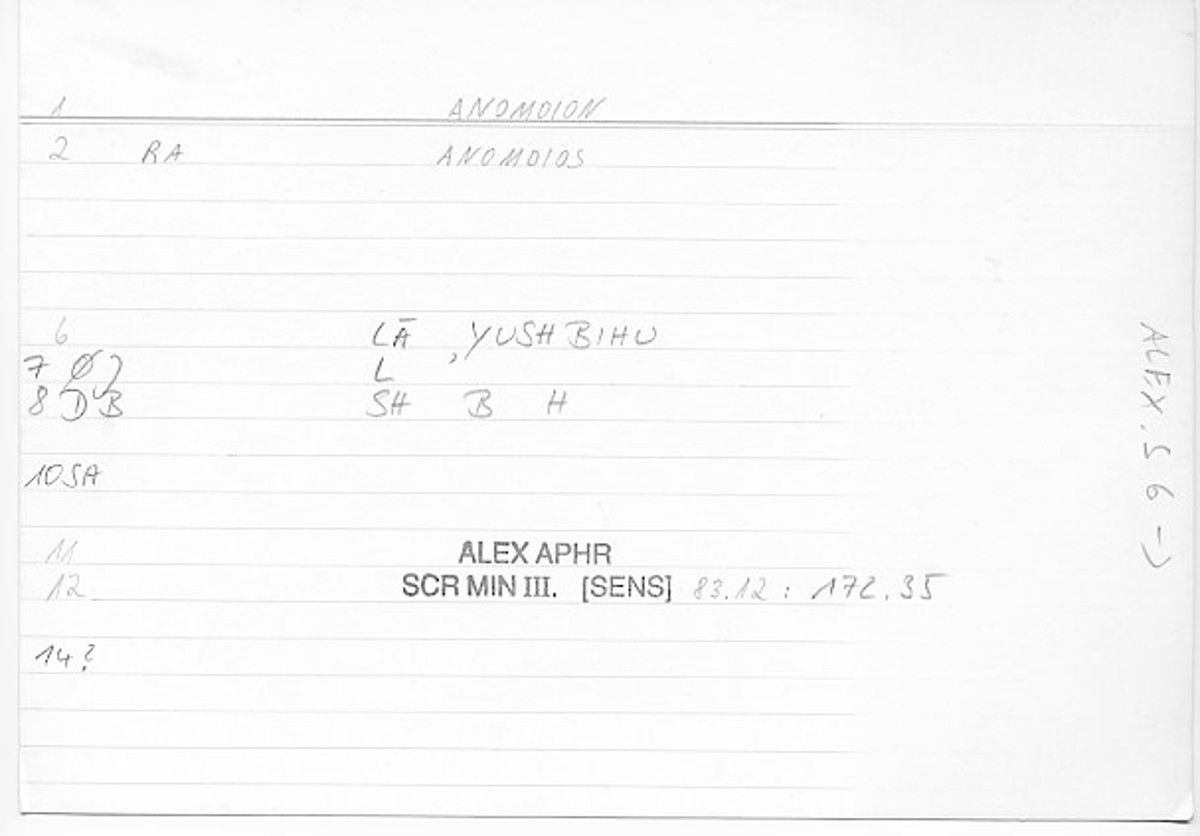 1 ANOMOION
2 RA ANOMOIOS
6 LĀ , YUSHBIHU
7 Ø) L
8 DB SH B H
10 SA
11 ALEX APHR
12 SCR MIN III. [SENS] 83.12 : 172.35
14?
ALEX. S 6 →